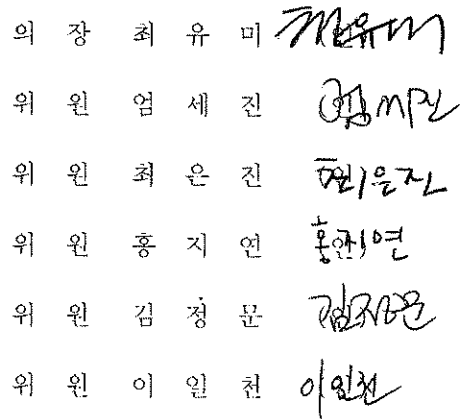 의 장 최 유 미 최유미
위 원 엄 세 진 엄세진
위 원 최 은 진 최은진
위 원 홍 지 연 홍지연
위 원 김 정 문 김정문
위 원 이 일 천 이일천